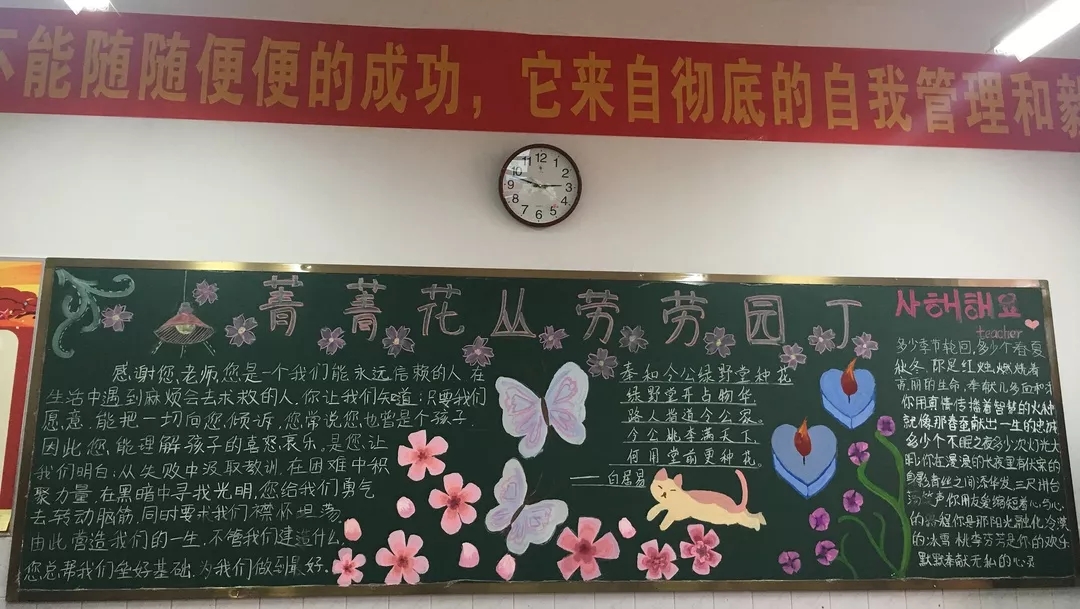 不能随随便便的成功，它来自彻底的自我管理和毅
11 12 1
10 2
9 3
8 4
7 6 5
菁菁花丛劳劳园丁
사해해요
teacher
感谢您,老师,您是一个我们能永远信赖的人,在
生活中遇到麻烦会去求救的人,你让我们知道:只要我们
愿意,能把一切向您倾诉,您常说您也曾是个孩子,
因此您能理解孩子的喜怒哀乐,是您让
我们明白:从失败中汲取教训,在困难中积
聚力量,在黑暗中寻找光明,您给我们勇气
去转动脑筋,同时要求我们襟怀坦荡
由此营造我们的一生,不管我们建造什么,
您总帮我们垒好基础,为我们做到最好.
奉和令公绿野堂种花
绿野堂开占物华
路人指道令公家。
令公桃李满天下,
何用堂前更种花。
——白居易
多少季节轮回,多少个春夏
秋冬,你是红烛,燃烧着
亮丽的生命,奉献几多血和汗
你用真情传播着智慧的火种
就像那春蚕献出一生的忠诚
多少个不眠之夜多少次灯光大
明,你在漫漫的长夜里有伏案的
身影青丝之间添华发,三尺讲台
荡笑声,你用友爱缩短着心与心
的 你是那阳光融化冷漠
的冰雪,桃李芬芳是你的欢乐
默默奉献无私的心灵